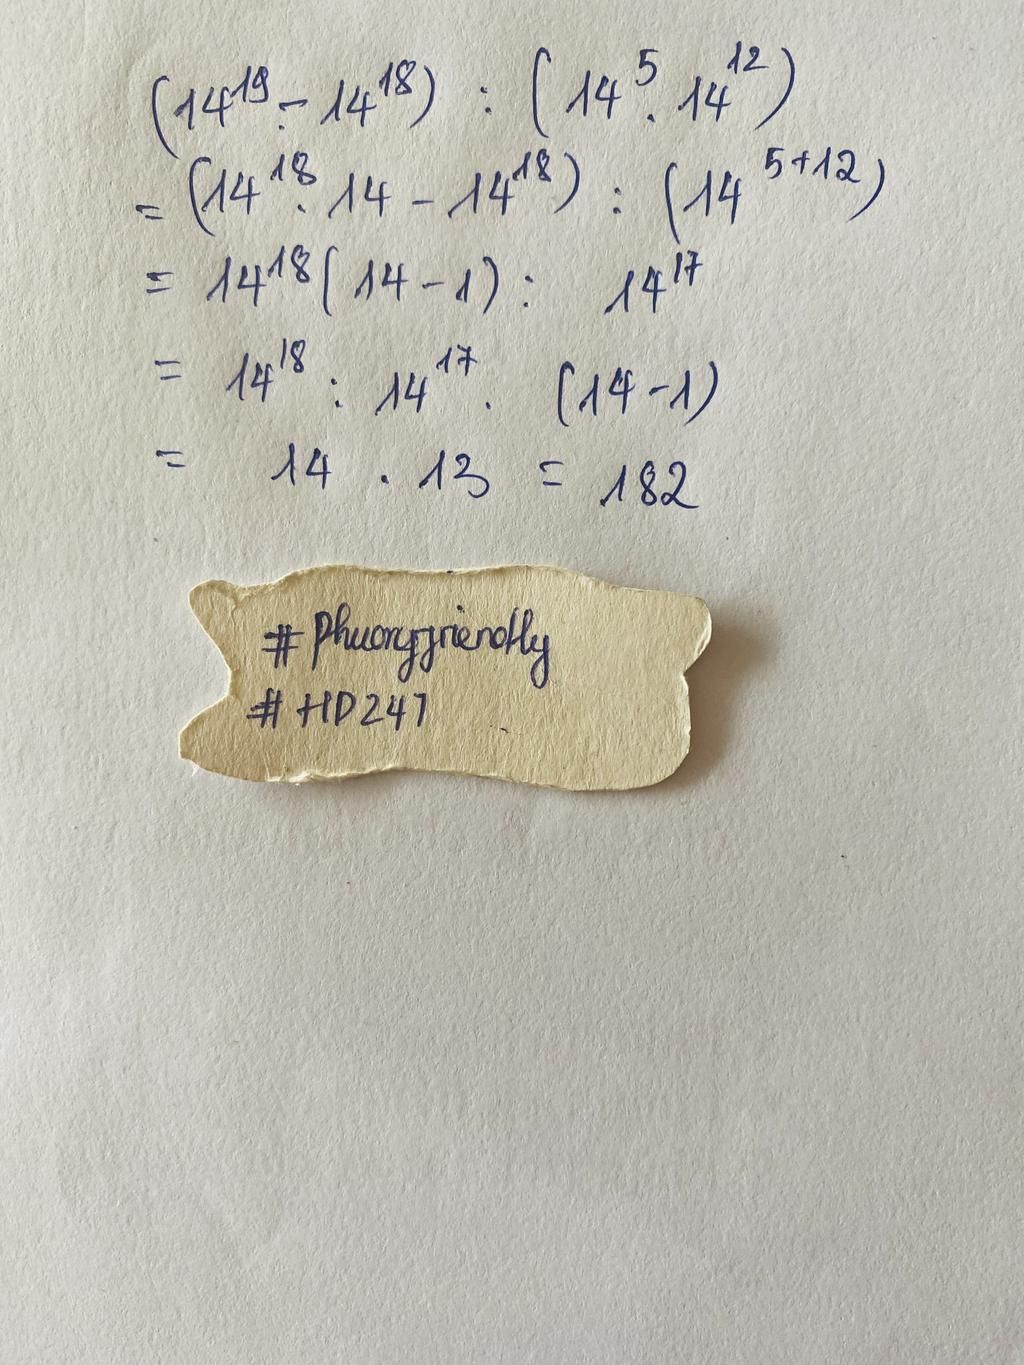 (14¹⁹ - 14¹⁸) : (14⁵ . 14¹²)
= (14¹⁸ . 14 - 14¹⁸) : (14⁵⁺¹²)
= 14¹⁸ (14 - 1) : 14¹⁷
= 14¹⁸ : 14¹⁷ . (14 - 1)
= 14 . 13 = 182
# Phuongfriendly
# HD247